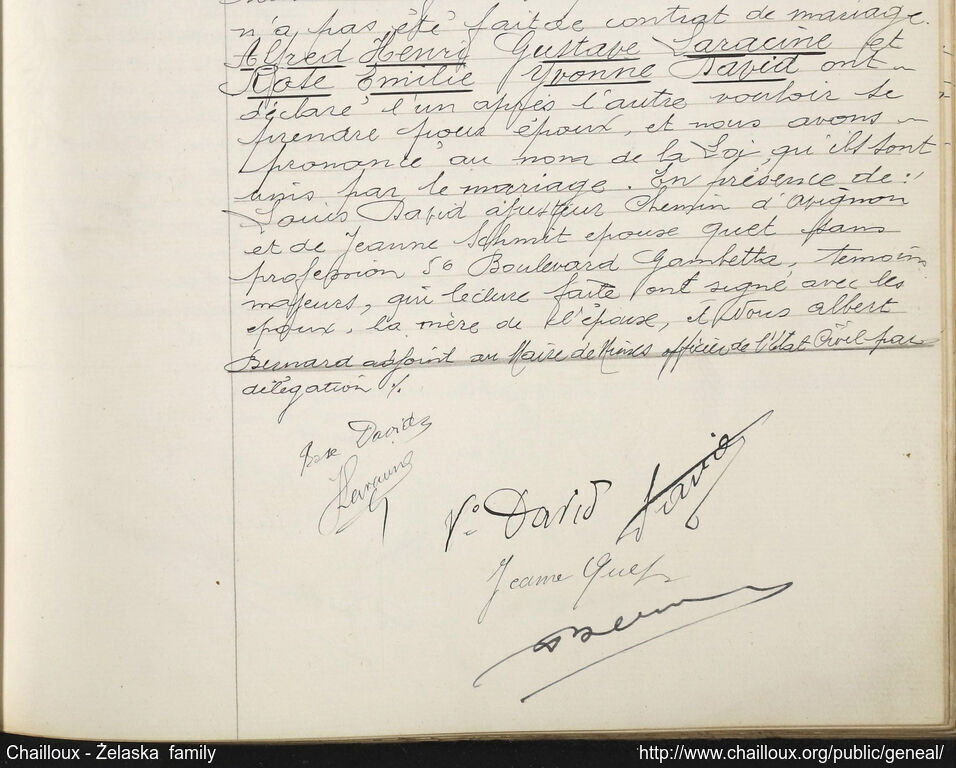 n'a pas été fait de contrat de mariage.
Alfred Henri Gustave Saracine et
Rose Emilie Yvonne David ont
déclaré l'un après l'autre vouloir se
prendre pour époux, et nous avons
prononcé au nom de la Loi, qu'ils sont
unis par le mariage. En présence de :
Louis David ajusteur Chemin d'Avignon
et de Jeanne Schmit epouse Quet sans
profession 50 Boulevard Gambetta, temoins
majeurs, qui lecture faite ont signé avec les
epoux, la mère de l'épouse, et Nous Albert
Bernard adjoint au Maire de Nimes officier de l'état Civil par
délégation ./.
Rose David
Ve David David
Jeanne Quet
Chailloux - Żelaska family
http://www.chailloux.org/public/geneal/